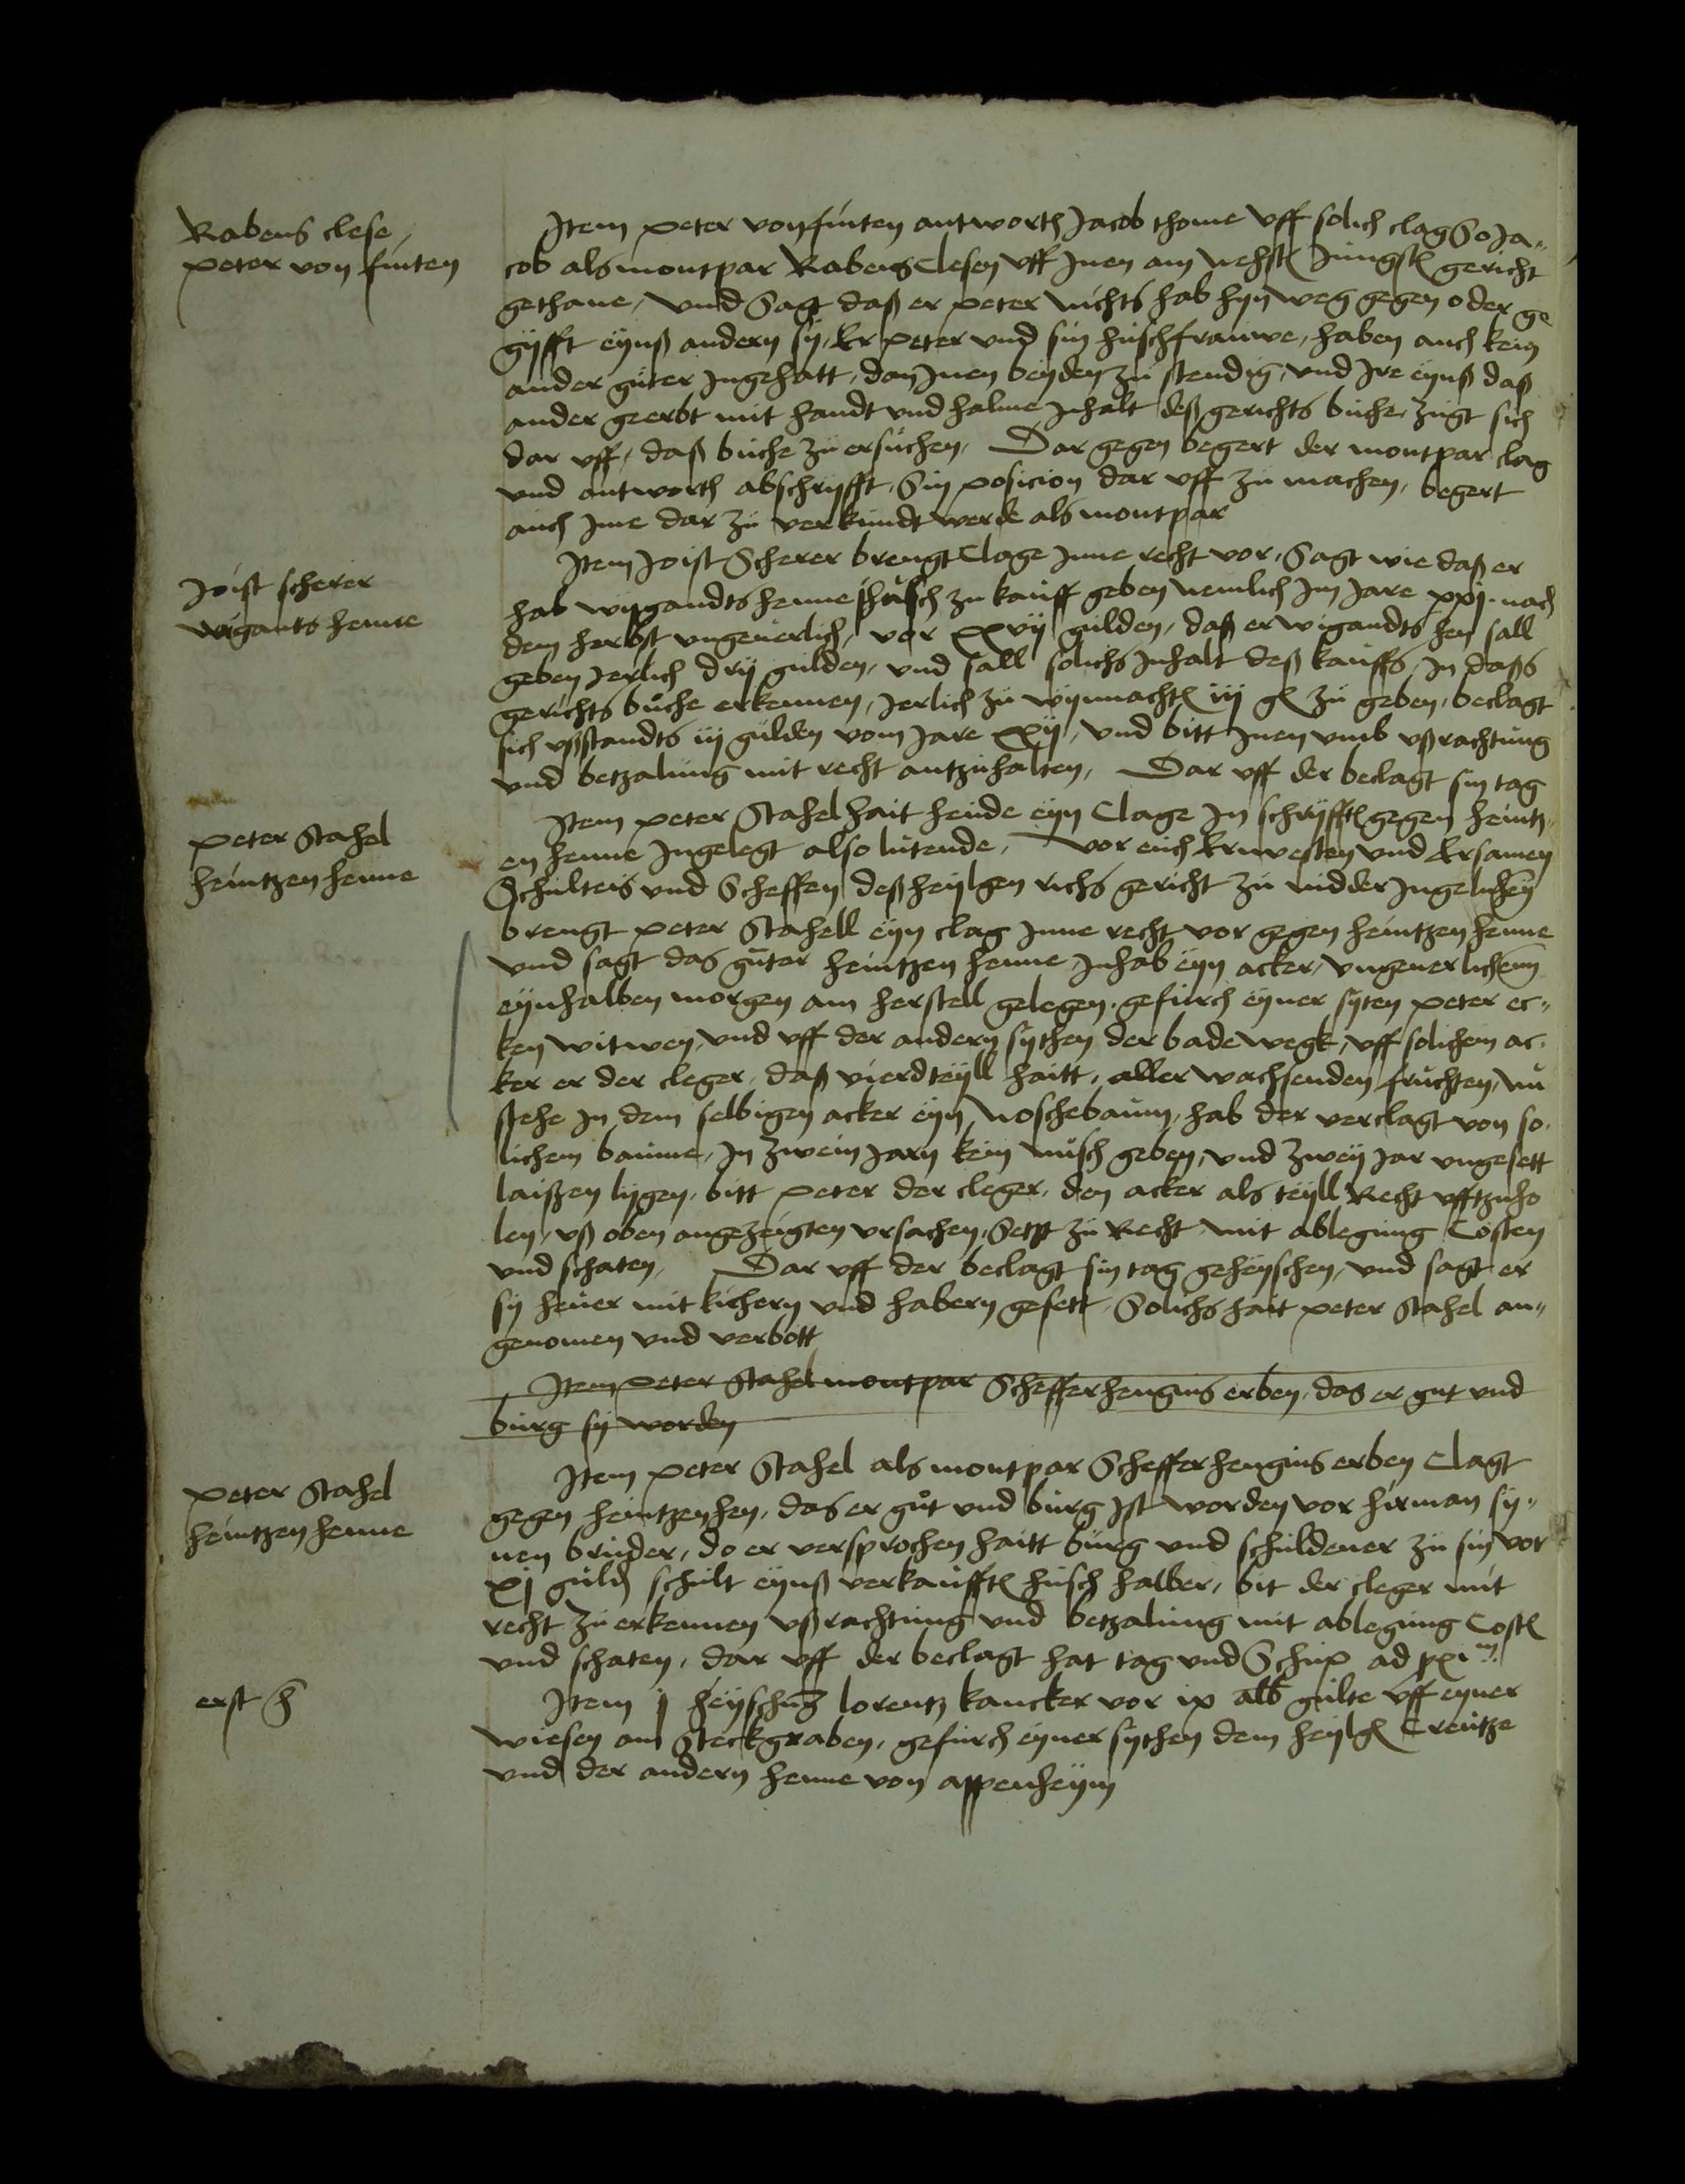 Rabens clese
peter von finten
Item peter von finten antworth Jacob thome vff solich clag So Ja-
cob als montpar Rabens Clesen vff Inen am nehst Jungst gericht
gethane, vnd Sagt daß er peter nichts hab hyn weg gegen oder ge
gyfft eynß andern sy, Er peter vnd sin huschfrauwe, haben auch kein
ander guter Ingehatt, dan Inen beyden zu stendig, vnd Ire eynß daß
ander geerbt mit handt vnd halme Inhalt deß gerichts buche, zugt sich
dar vff, daß buche zu ersuchen, Dar gegen begert der montpar clag
vnd antworth abschryfft, Sin posicion dar vff zu machen, begert
auch Ime dar zu verkundt werde als montpar
Joist scherer
wigants henne
Item Joist Scherer brengt Clage Inne recht vor, Sagt wie daß er
hab wygandts henne husch zu kauff geben nemlich Im Jare xxj. nach
dem herbst vngeuerlich, vor xxvij gulden, daß er wigandts hen sall
geben Jerlich dry gulden, vnd sall solichs Inhalt deß kauffs, In daßs
gerichts buche erkennen, Jerlich zu wynnacht iij gl zu geben, beclagt
sich vßstandts iij gulden vom Jare xxij, vnd bitt Inen vmb vßrachtung
vnd betzalung mit recht antzuhalten, Dar vff der beclagt sin tag
peter Stahel
heintzen henne
Item peter Stahel hait heude eyn Clage In schryfft gegen heintz-
en henne Ingelegt also lutende, Vor euch Ernvesten vnd Ersamen
Schulteis vnd Scheffen deß heylgen richs gericht zu nidder Ingelnheim
brengt peter Stahell eyn clag Inne recht vor gegen heintzen henne
vnd sagt das guter heintzen henne Inhab eyn acker, vngeuerlichem
eynhalben morgen am herstell gelegen, gefurch eyner syten peter ec-
ken witwen, vnd vff der andern sythen der bade wegk, vff solichem ac-
ker er der cleger, daß vierdteyll haitt, aller wachsenden fruchten, nu
stehe In dem selbigen acker eyn noschebaum, hab der verclagt von so-
lichem baume, In zwein Jarn kein nusch geben, vnd zwey Jar vngesett
laißen lygen, bitt peter der cleger, den acker als teyll Recht vfftzuho
len, vß oben angezeigten vrsachen, Setzt zu Recht mit ablegung Costen
vnd schaten, Dar vff der beclagt sin tag geheyschen, vnd sagt er
sy heuer mit kichern vnd habern gesett, Solichs hait peter Stahel an-
genomen vnd verbott
Item peter Stahel montpar Scheffer hengins erben, das er gut vnd
burg sy worden
peter Stahel
heintzen henne
Item peter Stahel als montpar Scheffer hengins erben Clagt
gegen heintzen hen, das er gut vnd burg Ist worden vor hirman sy-
nen bruder, do er versprochen haitt burg vnd schuldener zu sin vor
xj guld schult eynß verkaufft husch halber, bit der cleger mit
recht zu erkennen vßrachtung vnd betzalung mit ablegung Cost
vnd schaten, dar vff der beclagt hat tag vnd
erst h
Item j heyschung lorentz kancker vor ix alb gulte vff eyner
wiesen am Steckgraben, gefurch eyner sythen dem heylg Creutze
vnd der andern henne von appenheym